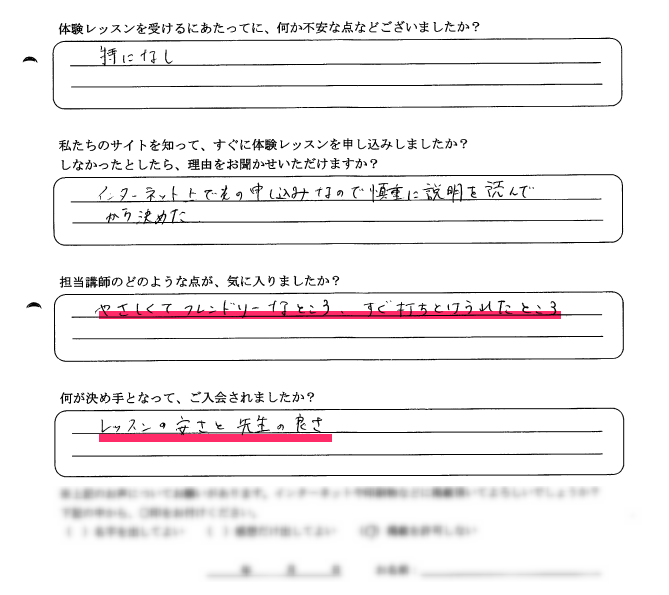 体験レッスンを受けるにあたってに、何か不安な点などございましたか？
特になし
私たちのサイトを知って、すぐに体験レッスンを申し込みしましたか？
しなかったとしたら、理由をお聞かせいただけますか？
インターネット上での申し込みなので慎重に説明を読んで
から決めた
担当講師のどのような点が、気に入りましたか？
やさしくてフレンドリーなところ、すぐ打ちとけられたところ
何が決め手となって、ご入会されましたか？
レッスンの安さと先生の良さ